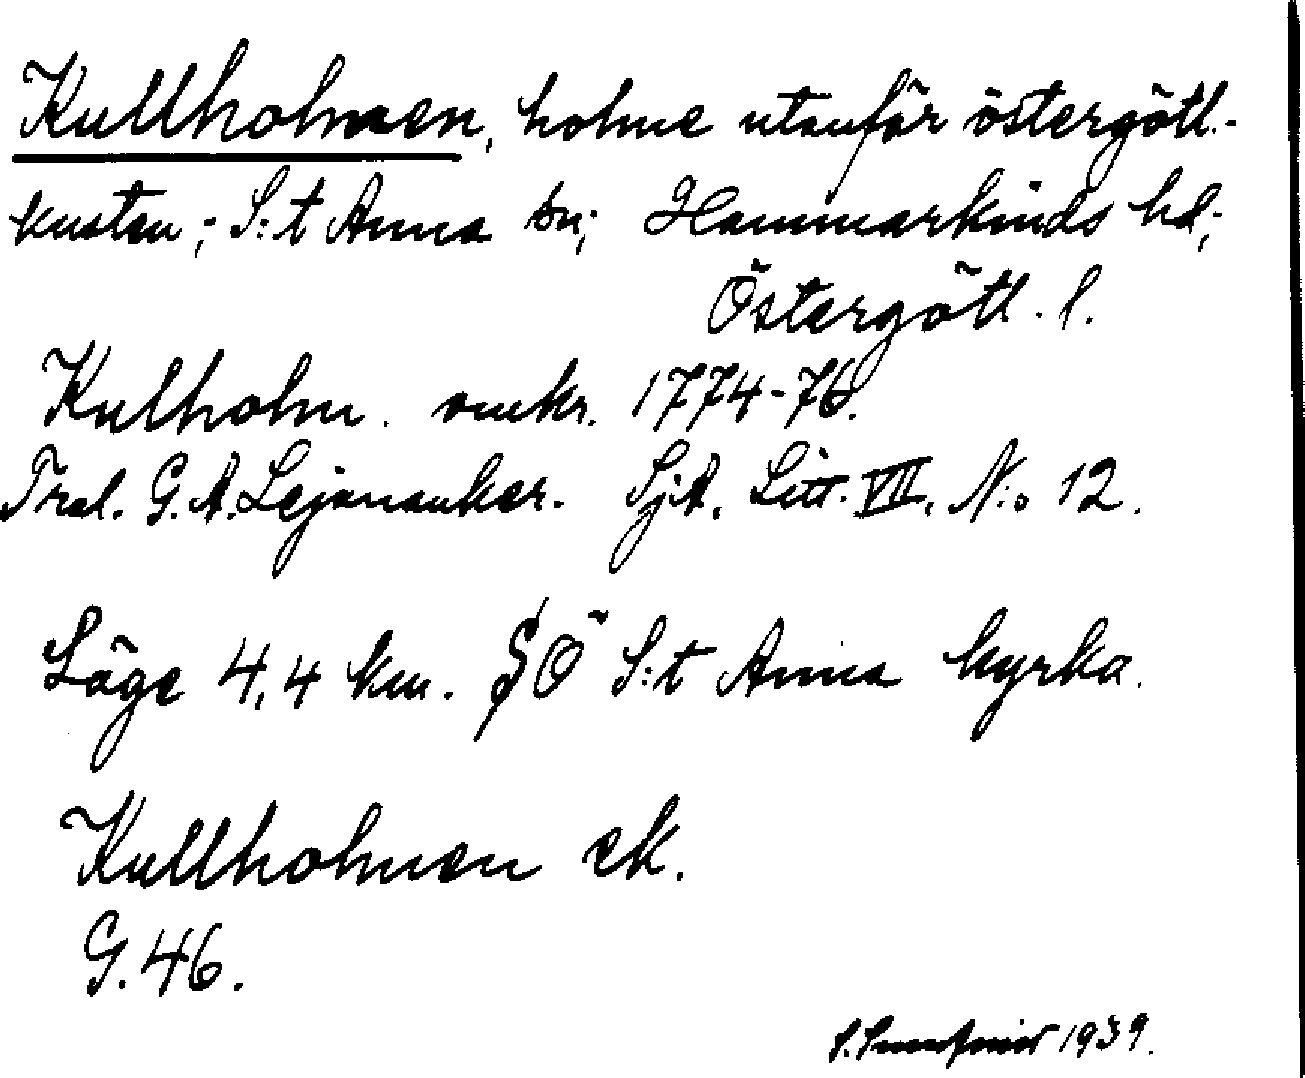 Kullholmen, holme utanför östergötl.-
kusten; S:t Anna sn; Hammarkinds hd;
Östergötl. l.
Kulholm. omkr. 1774-76.
Tral. G. A. Lejonanker. SjA. Litt. VII. N:o 12.
Läge 4,4 km. SÖ S:t Anna kyrka.
Kullholmen ek.
G. 46.
1939.